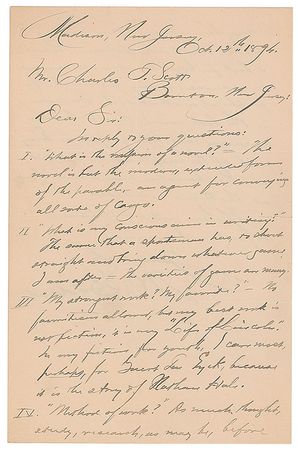 Madison, New Jersey,
Oct. 12th 1894.
Mr. Charles T. Scott
Boonton, New Jersey:
Dear Sir:
In reply to your questions:
I. "What is the mission of a novel?" — The
novel is but the modern, extended form
of the parable, — an agent for conveying
all sorts of Cargo.
II "What is my conscious aim in writing?"
The same that a sportsman has, to shoot
straight and bring down whatever game
I am after — the varieties of game are many.
III "My strongest work? My favorite?" — No
favoritism allowed, but my best work is
not fiction, it is my "Life of Lincoln."
In my fiction, for youth, I care most,
perhaps, for because
it is the story of Nathan Hale.
IV. "Method of work?" As much thought,
study, research, as may be, before